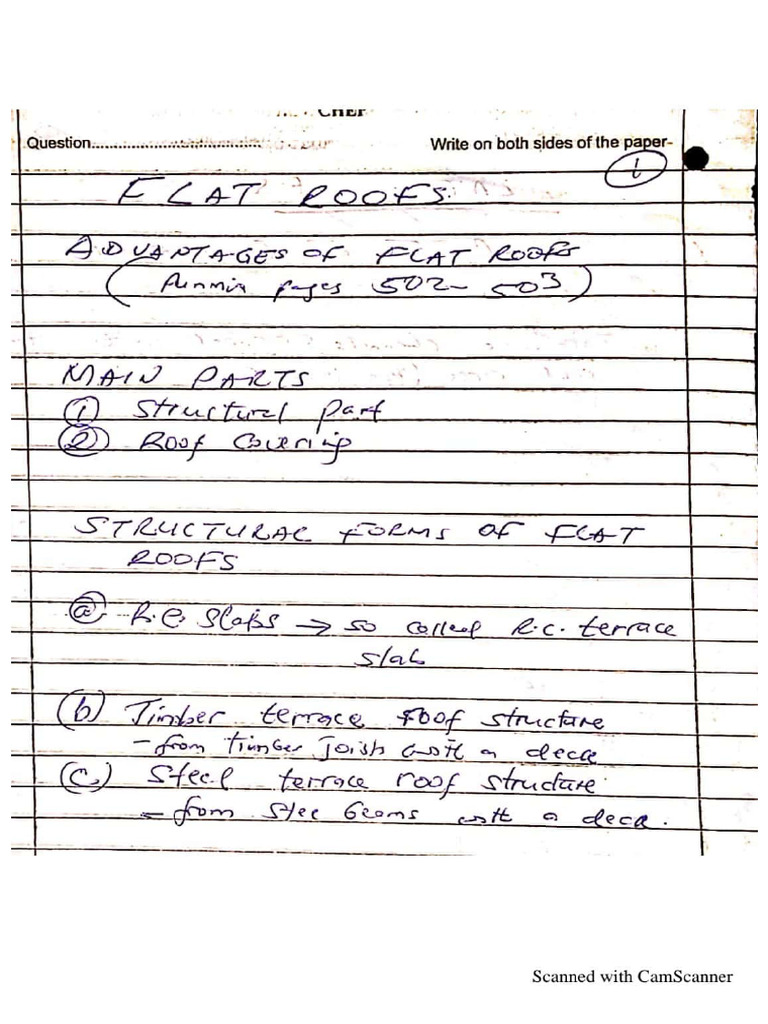 CHEF
Question............................................ Write on both sides of the paper-
1
FLAT ROOFS
ADVANTAGES OF FLAT ROOFS
(Punmia pages 502-503)
MAIN PARTS
① Structural part
② Roof Covering
STRUCTURAL FORMS OF FLAT
ROOFS
ⓐ R.C. Slabs → so called R.C. terrace
slab
(b) Timber terrace roof structure
- from timber joists with a deck
(c) Steel terrace roof structure
- from stee beams with a deck.
Scanned with CamScanner